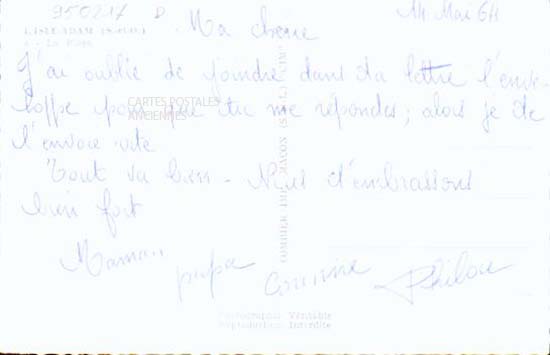 950217 D
14 Mai 64
L'ISLE-ADAM (S.-et-O.)
Ma chérie
J'ai oublié de joindre dans ta lettre l'enve-
loppe pour que tu me répondes ; alors je te
CARTES POSTALES
ANCIENNES
l'envoie vite
Tout va bien - Nous t'embrassons
bien fort
Maman
papa
Corinne
Philou
COMBIER IMP. MACON (S.-ET-L.)
Photographie Véritable
Reproduction Interdite